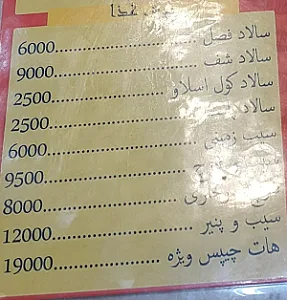 پیش غذا
سالاد فصل ........................ 6000
سالاد شف ........................ 9000
سالاد کول اسلاو ................ 2500
سالاد ........................ 2500
سیب زمینی ........................ 6000
........................ 9500
........................ 8000
سیب و پنیر ........................ 12000
هات چیپس ویژه ................ 19000